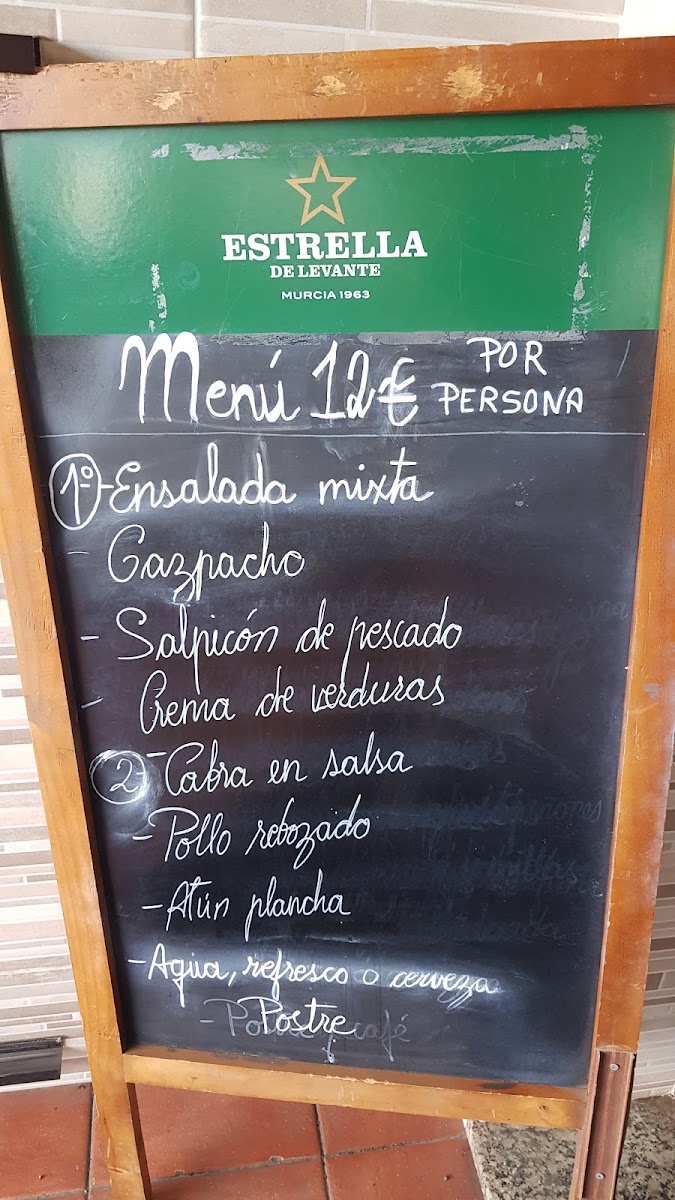 ESTRELLA
DE LEVANTE
MURCIA 1963
Menú 12€ POR PERSONA
1º - Ensalada mixta
- Gazpacho
- Salpicón de pescado
- Crema de verduras
2 - Cabra en salsa
- Pollo rebozado
- Atún plancha
- Agua, refresco o cerveza
Postre